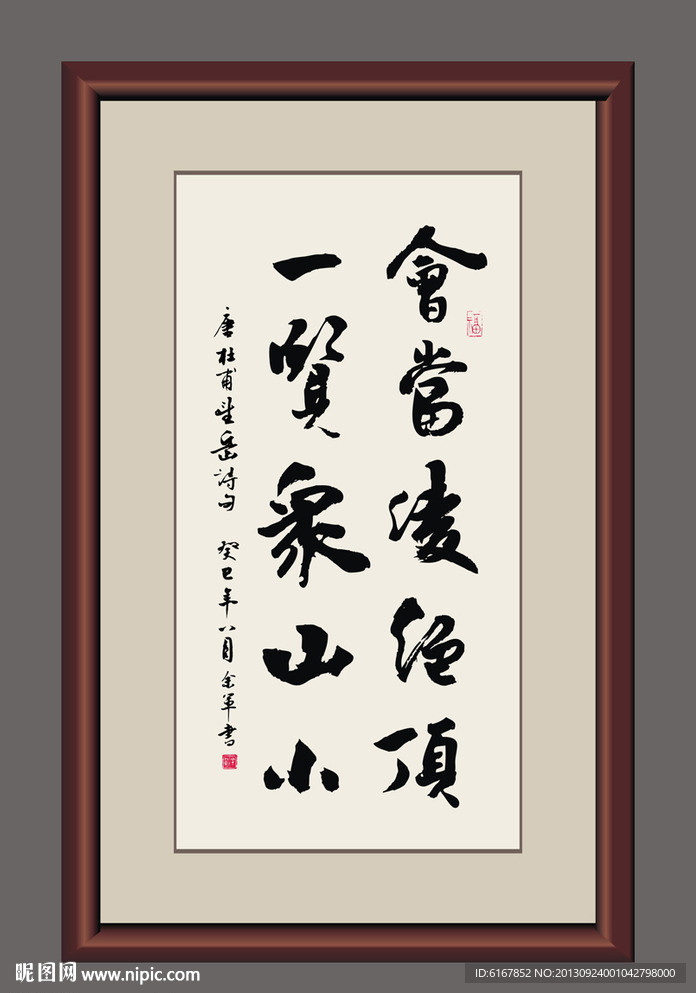 會當凌絕頂
一覽眾山小
唐杜甫望岳詩句 癸巳年八月金軍書
福
昵图网 www.nipic.com
ID:6167852 NO:20130924001042798000